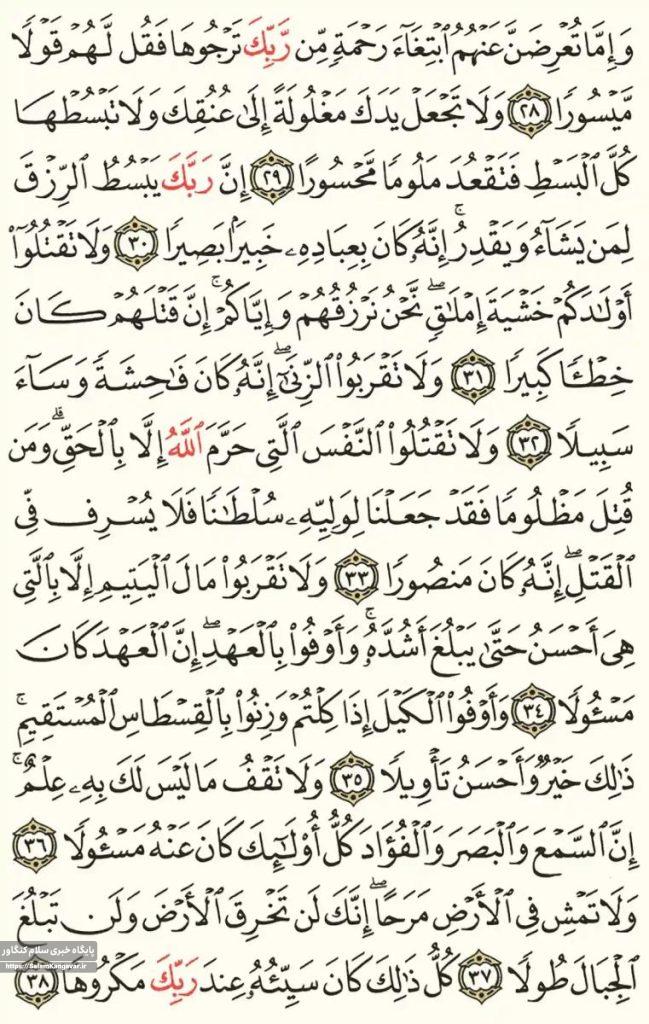 وَإِمَّا تُعْرِضَنَّ عَنْهُمُ ٱبْتِغَآءَ رَحْمَةٍ مِّن رَّبِّكَ تَرْجُوهَا فَقُل لَّهُمْ قَوْلًا
مَّيْسُورًا ٢٨ وَلَا تَجْعَلْ يَدَكَ مَغْلُولَةً إِلَىٰ عُنُقِكَ وَلَا تَبْسُطْهَا
كُلَّ ٱلْبَسْطِ فَتَقْعُدَ مَلُومًا مَّحْسُورًا ٢٩ إِنَّ رَبَّكَ يَبْسُطُ ٱلرِّزْقَ
لِمَن يَشَآءُ وَيَقْدِرُ ۚ إِنَّهُۥ كَانَ بِعِبَادِهِۦ خَبِيرًۢا بَصِيرًا ٣٠ وَلَا تَقْتُلُوٓا۟
أَوْلَٰدَكُمْ خَشْيَةَ إِمْلَٰقٍ ۖ نَّحْنُ نَرْزُقُهُمْ وَإِيَّاكُمْ ۚ إِنَّ قَتْلَهُمْ كَانَ
خِطْـًٔا كَبِيرًا ٣١ وَلَا تَقْرَبُوا۟ ٱلزِّنَىٰٓ ۖ إِنَّهُۥ كَانَ فَٰحِشَةً وَسَآءَ
سَبِيلًا ٣٢ وَلَا تَقْتُلُوا۟ ٱلنَّفْسَ ٱلَّتِى حَرَّمَ ٱللَّهُ إِلَّا بِٱلْحَقِّ ۗ وَمَن
قُتِلَ مَظْلُومًا فَقَدْ جَعَلْنَا لِوَلِيِّهِۦ سُلْطَٰنًا فَلَا يُسْرِف فِّى
ٱلْقَتْلِ ۖ إِنَّهُۥ كَانَ مَنصُورًا ٣٣ وَلَا تَقْرَبُوا۟ مَالَ ٱلْيَتِيمِ إِلَّا بِٱلَّتِى
هِىَ أَحْسَنُ حَتَّىٰ يَبْلُغَ أَشُدَّهُۥ ۚ وَأَوْفُوا۟ بِٱلْعَهْدِ ۖ إِنَّ ٱلْعَهْدَ كَانَ
مَسْـُٔولًا ٣٤ وَأَوْفُوا۟ ٱلْكَيْلَ إِذَا كِلْتُمْ وَزِنُوا۟ بِٱلْقِسْطَاسِ ٱلْمُسْتَقِيمِ ۚ
ذَٰلِكَ خَيْرٌ وَأَحْسَنُ تَأْوِيلًا ٣٥ وَلَا تَقْفُ مَا لَيْسَ لَكَ بِهِۦ عِلْمٌ ۚ
إِنَّ ٱلسَّمْعَ وَٱلْبَصَرَ وَٱلْفُؤَادَ كُلُّ أُو۟لَٰٓئِكَ كَانَ عَنْهُ مَسْـُٔولًا ٣٦
وَلَا تَمْشِ فِى ٱلْأَرْضِ مَرَحًا ۖ إِنَّكَ لَن تَخْرِقَ ٱلْأَرْضَ وَلَن تَبْلُغَ
ٱلْجِبَالَ طُولًا ٣٧ كُلُّ ذَٰلِكَ كَانَ سَيِّئُهُۥ عِندَ رَبِّكَ مَكْرُوهًا ٣٨
پایگاه خبری سلام کنگاور
https://SalamKangavar.ir